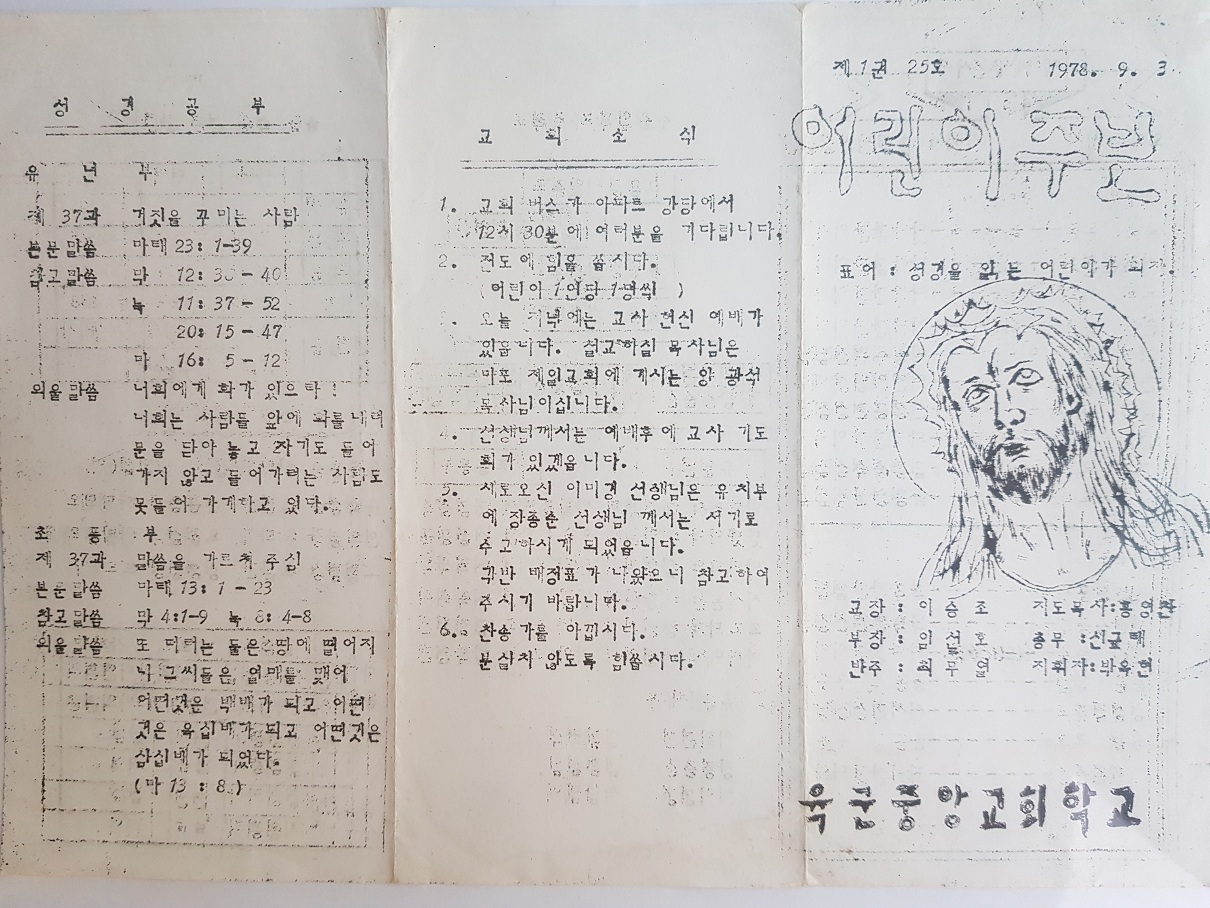 성 경 공 부
유 년 부
제 37과 거짓을 꾸미는 사람
본문말씀 마태 23: 1-39
참고말씀 막 12: 38-40
눅 11: 37-52
20: 15-47
마 16: 5-12
외울말씀 너희에게 화가 있으라!
너희는 사람들 앞에
문을 닫아 놓고 자기도 들어
가지 않고 들어가려는 사람도
못들어 가게하고 있다.
초 등 부
제 37과 말씀을 가르쳐 주심
본문말씀 마태 13: 1-23
참고말씀 막 4:1-9 눅 8: 4-8
외울말씀 또 더러는 좋은 땅에 떨어지
니 그씨들은 열매를 맺어
어떤것은 백배가 되고 어떤
것은 육십배가 되고 어떤것은
삼십배가 되었다.
(마 13 : 8)
교 회 소 식
1. 교회 버스가 아파트 강당에서
12시 30분에 여러분을 기다립니다.
2. 전도에 힘을 씁시다.
(어린이 1인당 1명씩 )
오늘 저녁에는 교사 헌신 예배가
있읍니다. 설교하실 목사님은
마포 제일교회에 계시는 양 광석
목사님이십니다.
4. 선생님께서는 예배후에 교사 기도
회가 있겠읍니다.
5. 새로오신 이미경 선생님은 유치부
에 장종순 선생님 께서는 서기로
수고하시게 되었읍니다.
각반 배정표가 나왔으니 참고하여
주시기 바랍니다.
6. 찬송가를 아낍시다.
분실치 않도록 힘씁시다.
제1권 25호 1978. 9. 3
어린이주보
표어 : 성경을 읽는 어린이가 되자.
교장 : 이 승 조 지도목사:홍영찬
부장 : 임 선 호 총무 :신균택
반주 : 최 무 열 지휘자:박옥현
육군중앙교회학교